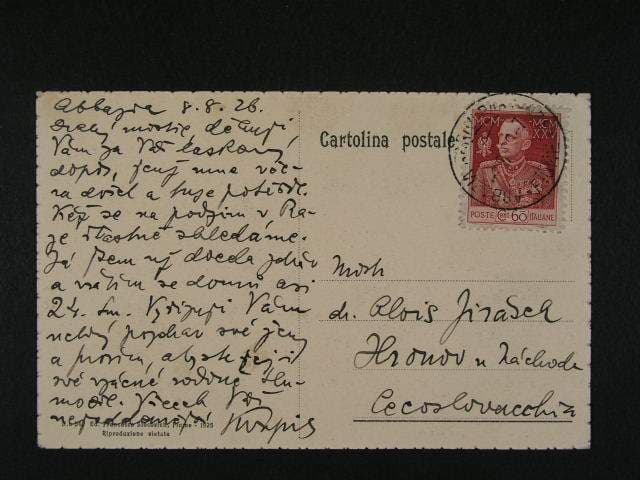 Abbazia 8.8.26.
Drahý mistře, děkuji
Vám za Váš laskavý
dopis, jenž mne včera
došel a tuze potěšil.
Kéž se na podzim v Praze
šťastně shledáme.
Já jsem už docela zdráv
a vrátím se domů asi
24. t.m. Vyřizuji Vám
pozdrav své ženy
a prosím, abyste jej i
své vzácné rodině tlumočil.
Všecek Váš
Cartolina postale
MCM
MC
XXV
POSTE
60
ITALIANE
Mistr
dr. Alois Jirásek
Hronov u Náchoda
Cecoslovacchia
Fiume - 1925
Riproduzione vietata